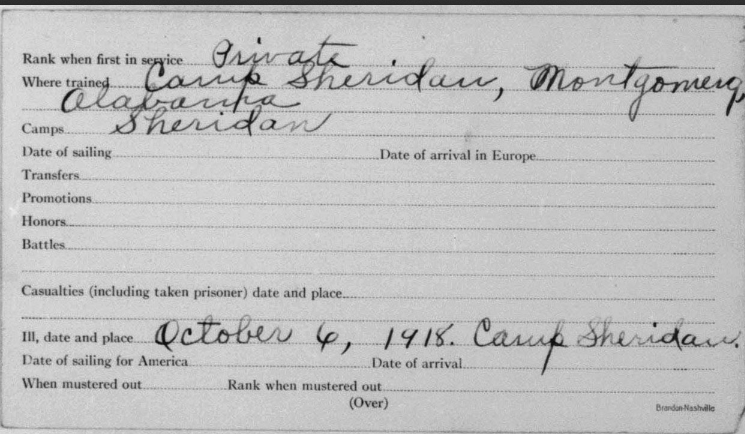 Rank when first in service Private
Where trained Camp Sheridan, Montgomery,
Alabama
Camps Sheridan
Date of sailing Date of arrival in Europe
Transfers
Promotions
Honors
Battles
Casualties (including taken prisoner) date and place
Ill, date and place October 6, 1918. Camp Sheridan.
Date of sailing for America Date of arrival
When mustered out Rank when mustered out
(Over)
Brandon-Nashville